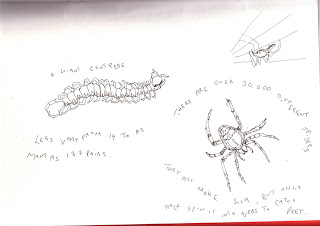 A GIANT CENTIPEDE
LEGS VARY FROM 14 TO AS
MANY AS 177 PAIRS.
THERE ARE OVER 30,000 DIFFERENT SPIDERS
THEY ALL MAKE SILK, BUT ONLY
HALF SPIN IT INTO WEBS TO CATCH PREY.